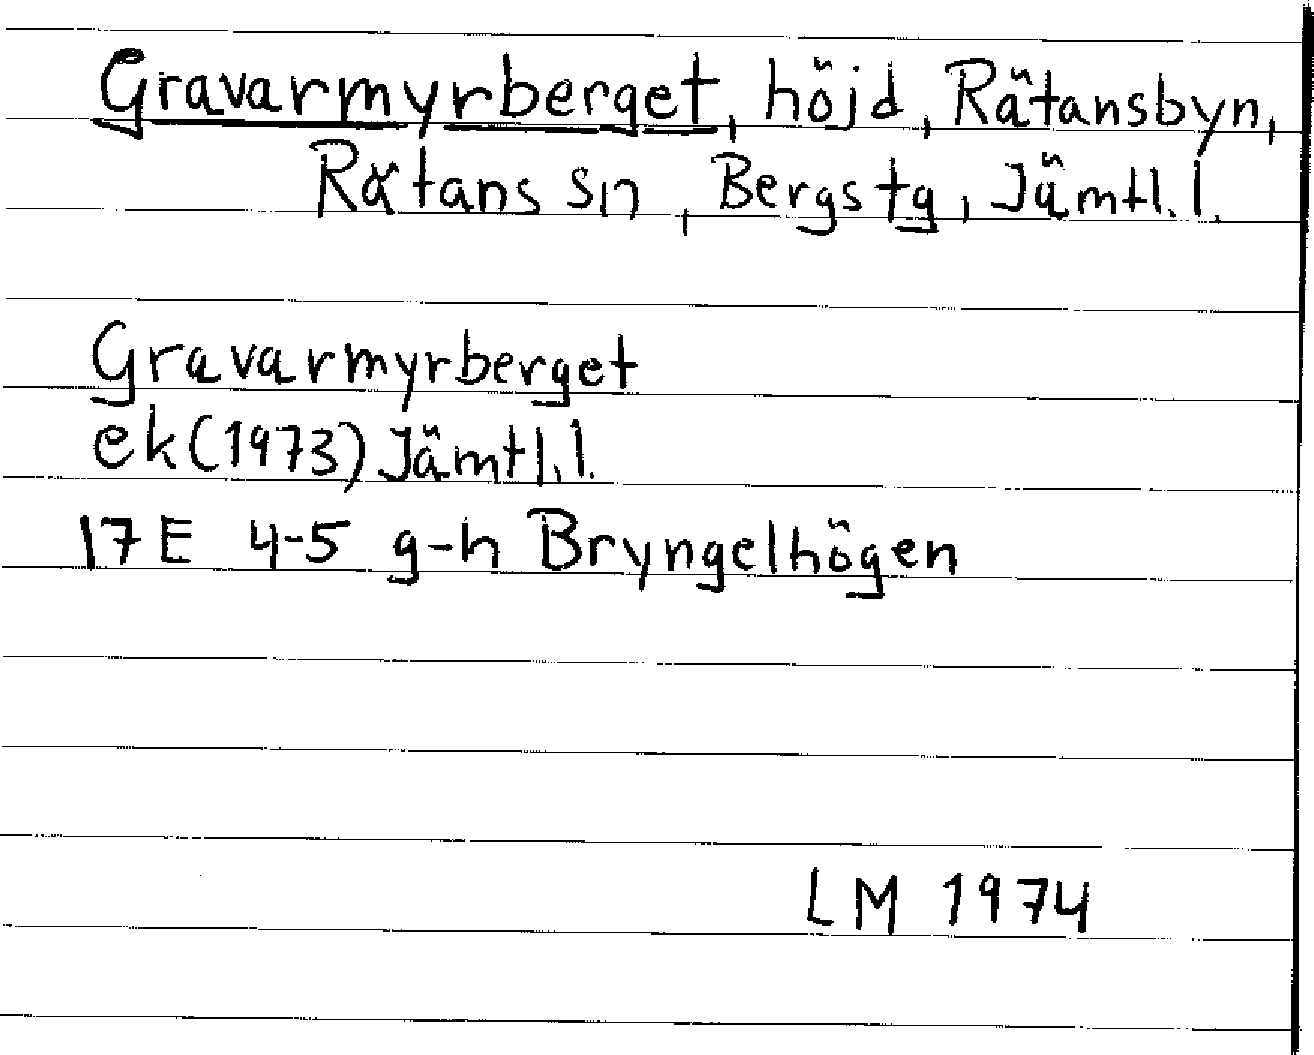 Gravarmyrberget, höjd, Rätansbyn,
Rätans sn, Bergs tg, Jämtl. l.
Gravarmyrberget
ek (1973) Jämtl. l.
17E 4-5 g-h Bryngelhögen
LM 1974